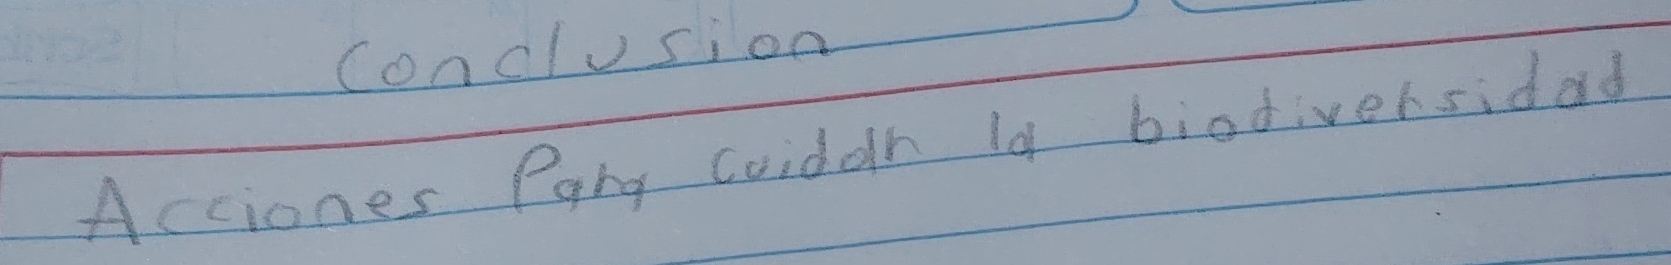 Conclusion
Acciones Para cuidar la biodiversidad